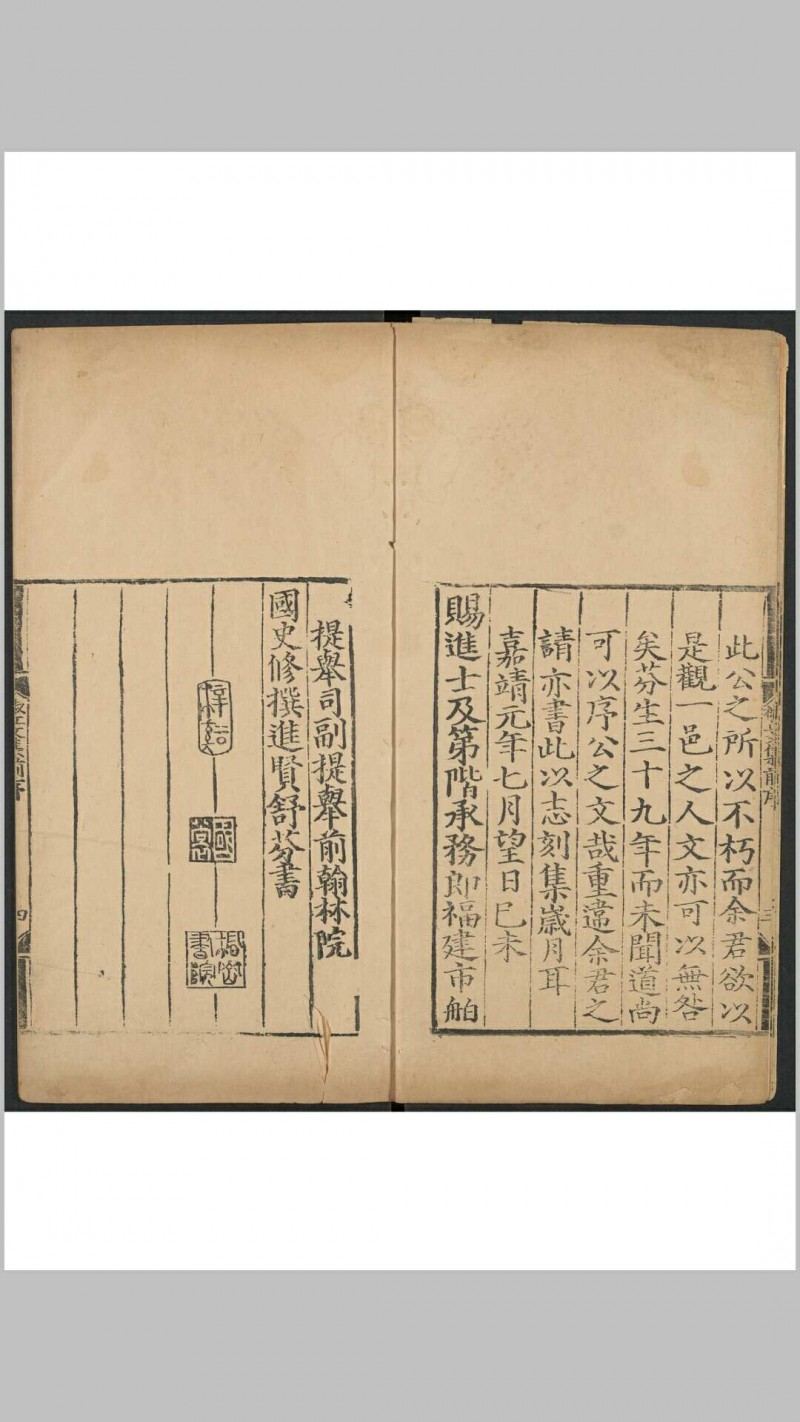 此公之所以不朽而余君欲以
是觀一邑之人文亦可以無咎
矣芬生三十九年而未聞道尚
可以序公之文哉重違余君之
請亦書此以志刻集歲月耳
嘉靖元年七月望日巳未
賜進士及第階承務郎福建市舶
提舉司副提舉前翰林院
國史修撰進賢舒芬書
四